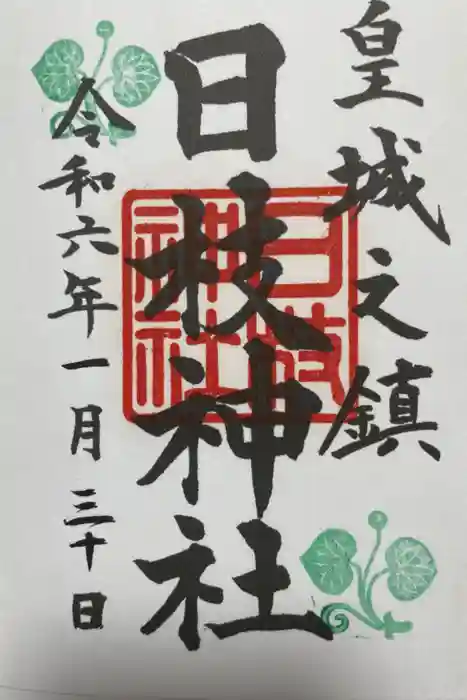 皇城之鎮
日枝神社
令和六年一月三十日
日枝
神社